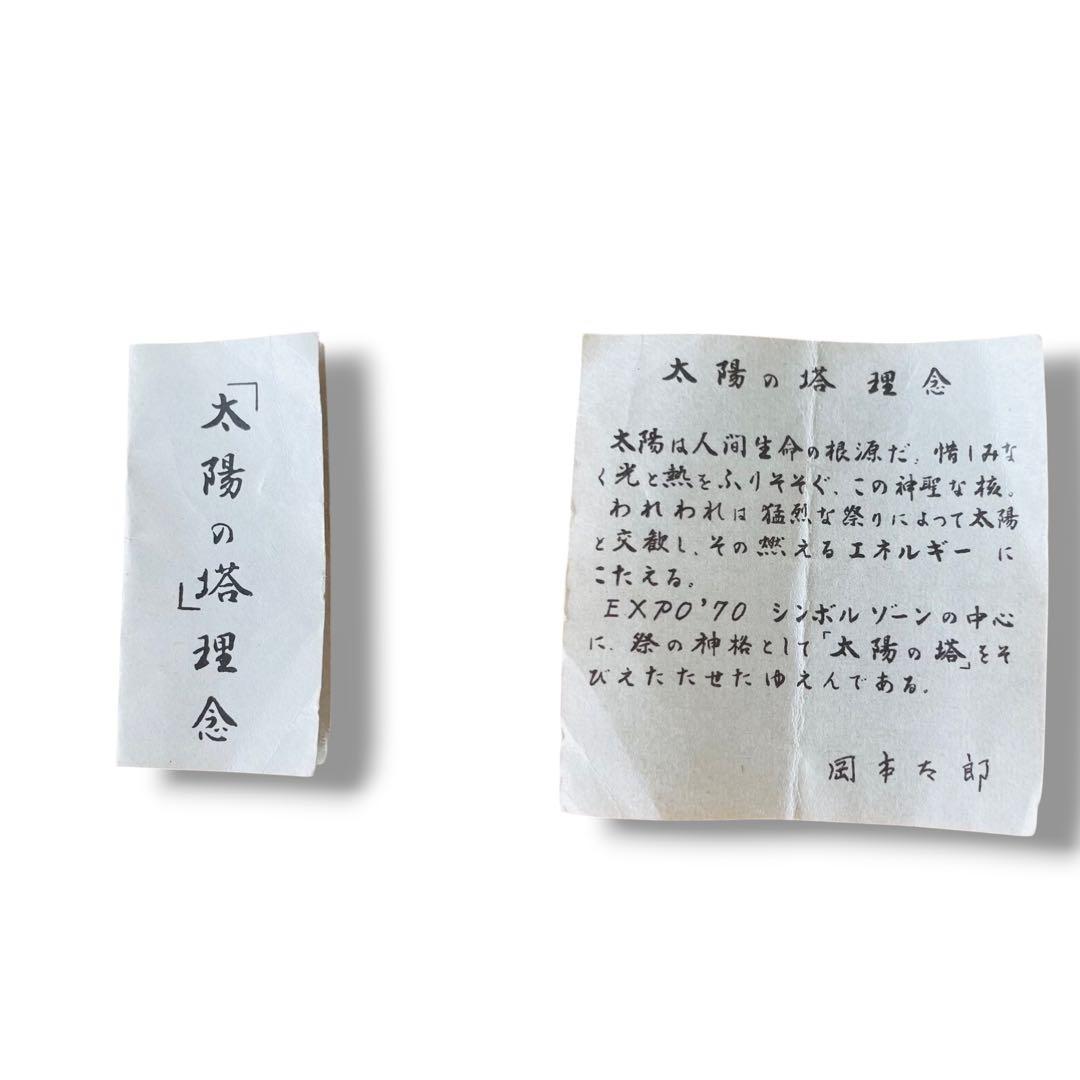 「太陽の塔」理念
太陽の塔 理念
太陽は人間生命の根源だ。惜しみな
く光と熱をふりそそぐ、この神聖な核。
われわれは猛烈な祭りによって太陽
と交歓し、その燃えるエネルギーに
こたえる。
EXPO'70 シンボルゾーンの中心
に、祭の神格として「太陽の塔」をそ
びえたたせたゆえんである。
岡本太郎